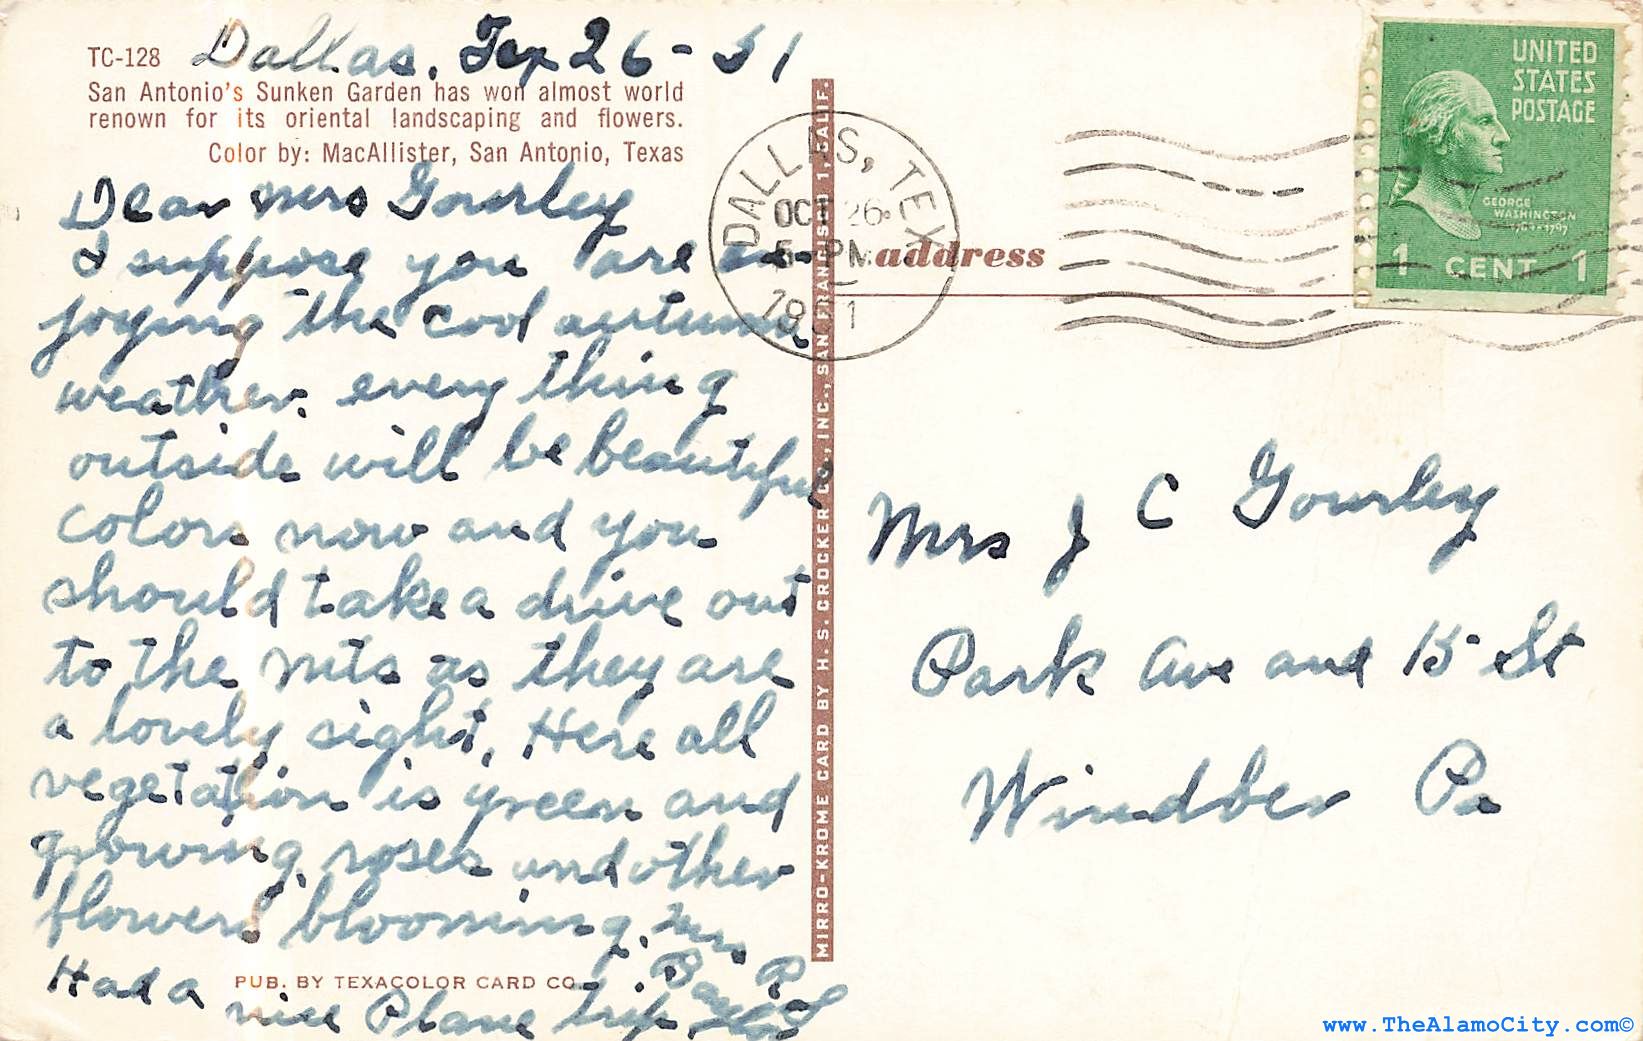 TC-128
Dallas, Tex 26 - 51
San Antonio's Sunken Garden has won almost world
renown for its oriental landscaping and flowers.
Color by: MacAllister, San Antonio, Texas
Dear Mrs Gourley
I suppose you are en-
joying the cool autumn
weather. every thing
outside will be beautiful
colors now and you
should take a drive out
to the mts as they are
a lovely sight. Here all
vegetation is green and
growing, roses and other
flowers blooming. Mrs
Had a
nice Plane trip
PUB. BY TEXACOLOR CARD CO.
MIRRO-KROME CARD BY H. S. CROCKER CO., INC., SAN FRANCISCO 1, CALIF.
DALLAS, TEX
OCT 26
5 PM
1951
address
UNITED
STATES
POSTAGE
GEORGE
WASHINGTON
1789-1797
1 CENT 1
Mrs J C Gourley
Park Ave and 15 St
Windber Pa
www.TheAlamoCity.com©